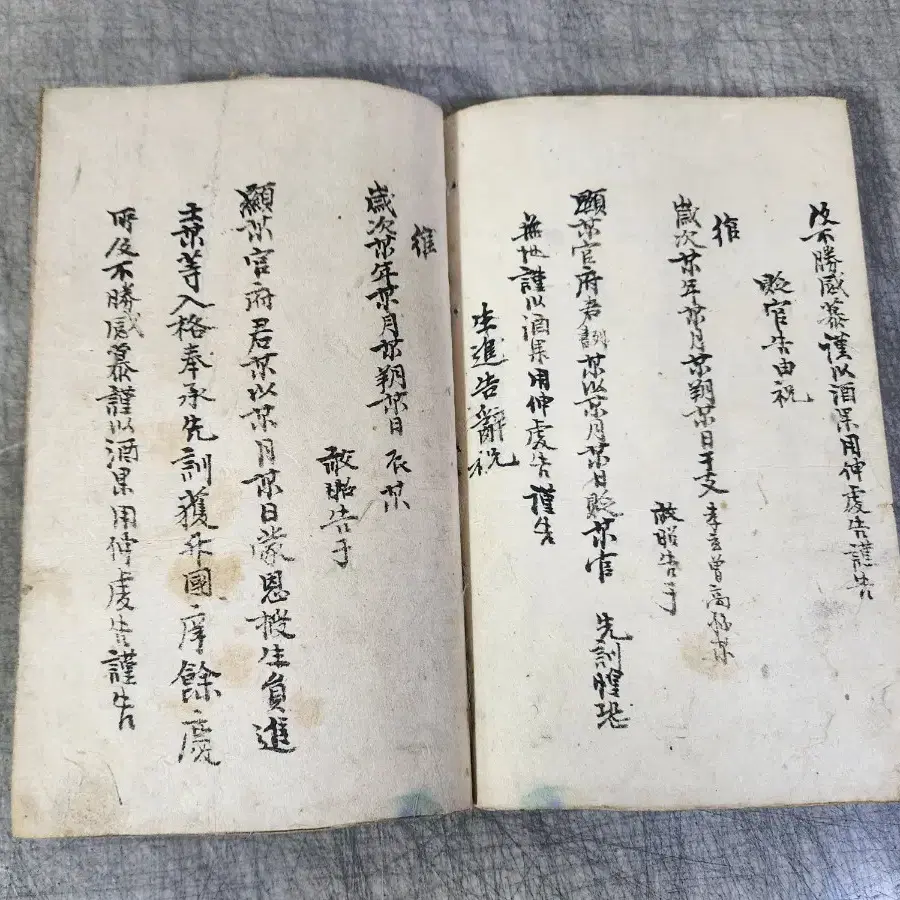 及不勝感慕謹以酒果用伸虔告謹告
貶官告由祝
維
歲次某年某月某朔某日干支 孝玄曾高孫某
敢昭告于
顯某官府君訓某以某月某日貶某官 先訓惶恐
無地謹以酒果用伸虔告謹告
生進告辭祝
維
歲次某年某月某朔某日辰某
敢昭告于
顯某官府君某以某月某日蒙恩授生員進
士某等入格奉承先訓獲升國庠餘慶
所及不勝感慕謹以酒果用伸虔告謹告